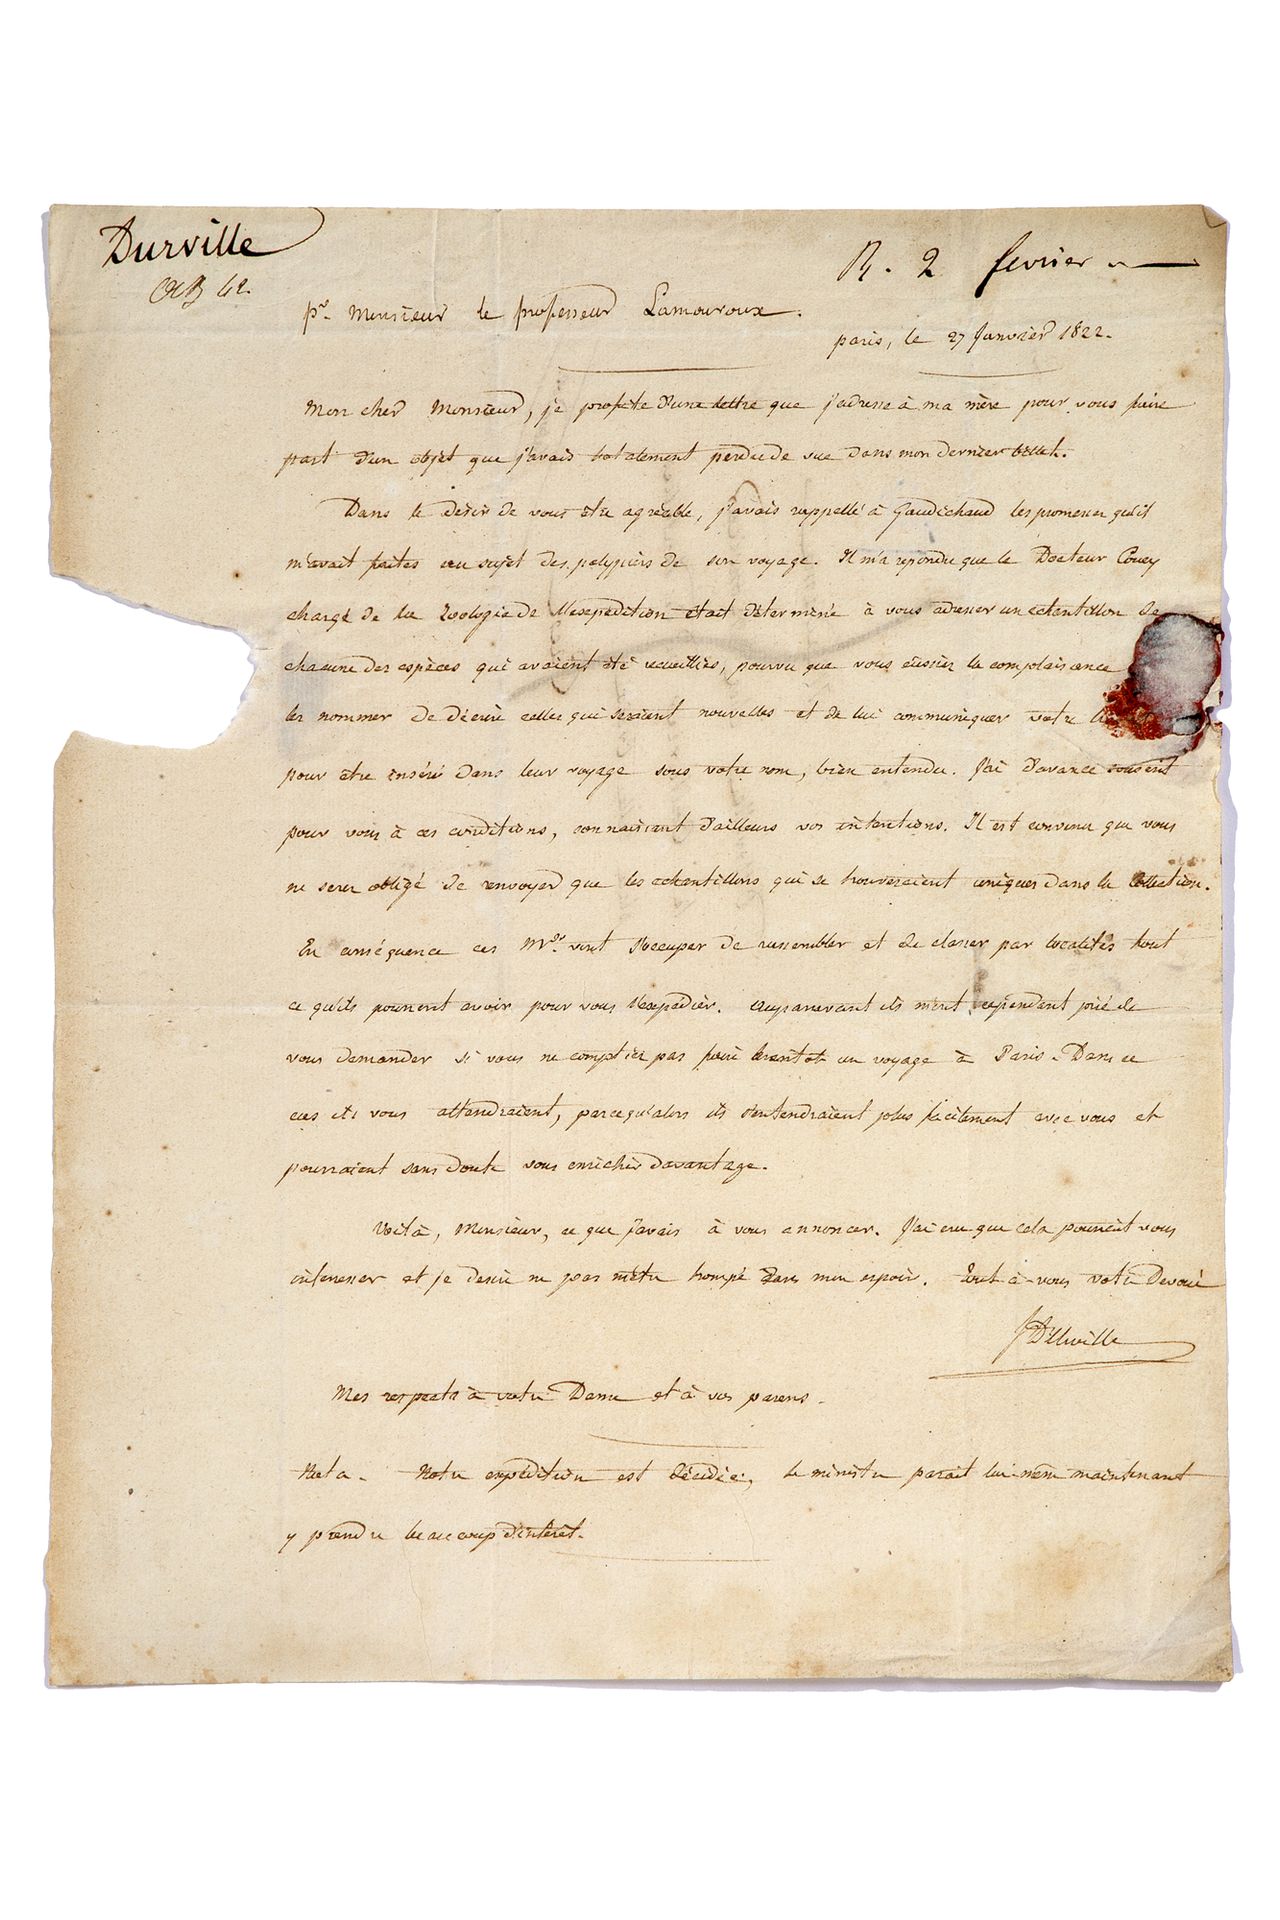 Durville
R. 2 fevrier
pr. Monsieur le professeur Lamouroux.
paris, le 27 Janvier 1822.
Mon cher Monsieur, je profite d'une lettre que j'adresse à ma mère pour vous faire
part d'un objet que j'avais totalement perdu de vue dans mon dernier billet.
Dans le désir de vous être agréable, j'avais rappellé à Gaudichaud les promesses qu'il
m'avait faites au sujet des polypiers de son voyage. Il m'a repondu que le Docteur
chargé de la Zoologie de l'expédition était déterminé à vous adresser un échantillon de
chacune des espèces qui avaient été recueillies, pourvu que vous eussiez la complaisance
les nommer de décrire celles qui seraient nouvelles et de lui communiquer votre
pour être inséré dans leur voyage sous votre nom, bien entendu. J'ai d'avance souscrit
pour vous à ces conditions, connaissant d'ailleurs vos intentions. Il est convenu que vous
ne serez obligé de renvoyer que les echantillons qui se trouveraient uniques dans la Collection.
En conséquence ces Mrs. vont s'occuper de rassembler et de classer par localités tout
ce qu'ils pourront avoir pour vous l'expédier. Auparavant ils m'ont cependant prié de
vous demander si vous ne comptiez pas faire bientôt un voyage à Paris. Dans ce
cas ils vous attendraient, parcequ'alors ils s'entendraient plus facilement avec vous et
pourraient sans doute vous enrichir davantage.
Voilà, Monsieur, ce que j'avais à vous annoncer. J'ai cru que cela pourrait vous
interesser et je desire ne pas m'être trompé dans mon espoir. Tout à vous votre Devoué
JD'Urville
Mes respects à votre Dame et à vos parens.
Nota. Notre expédition est décidée, le ministre parait lui-même maintenant
y prendre beaucoup d'intérêt.